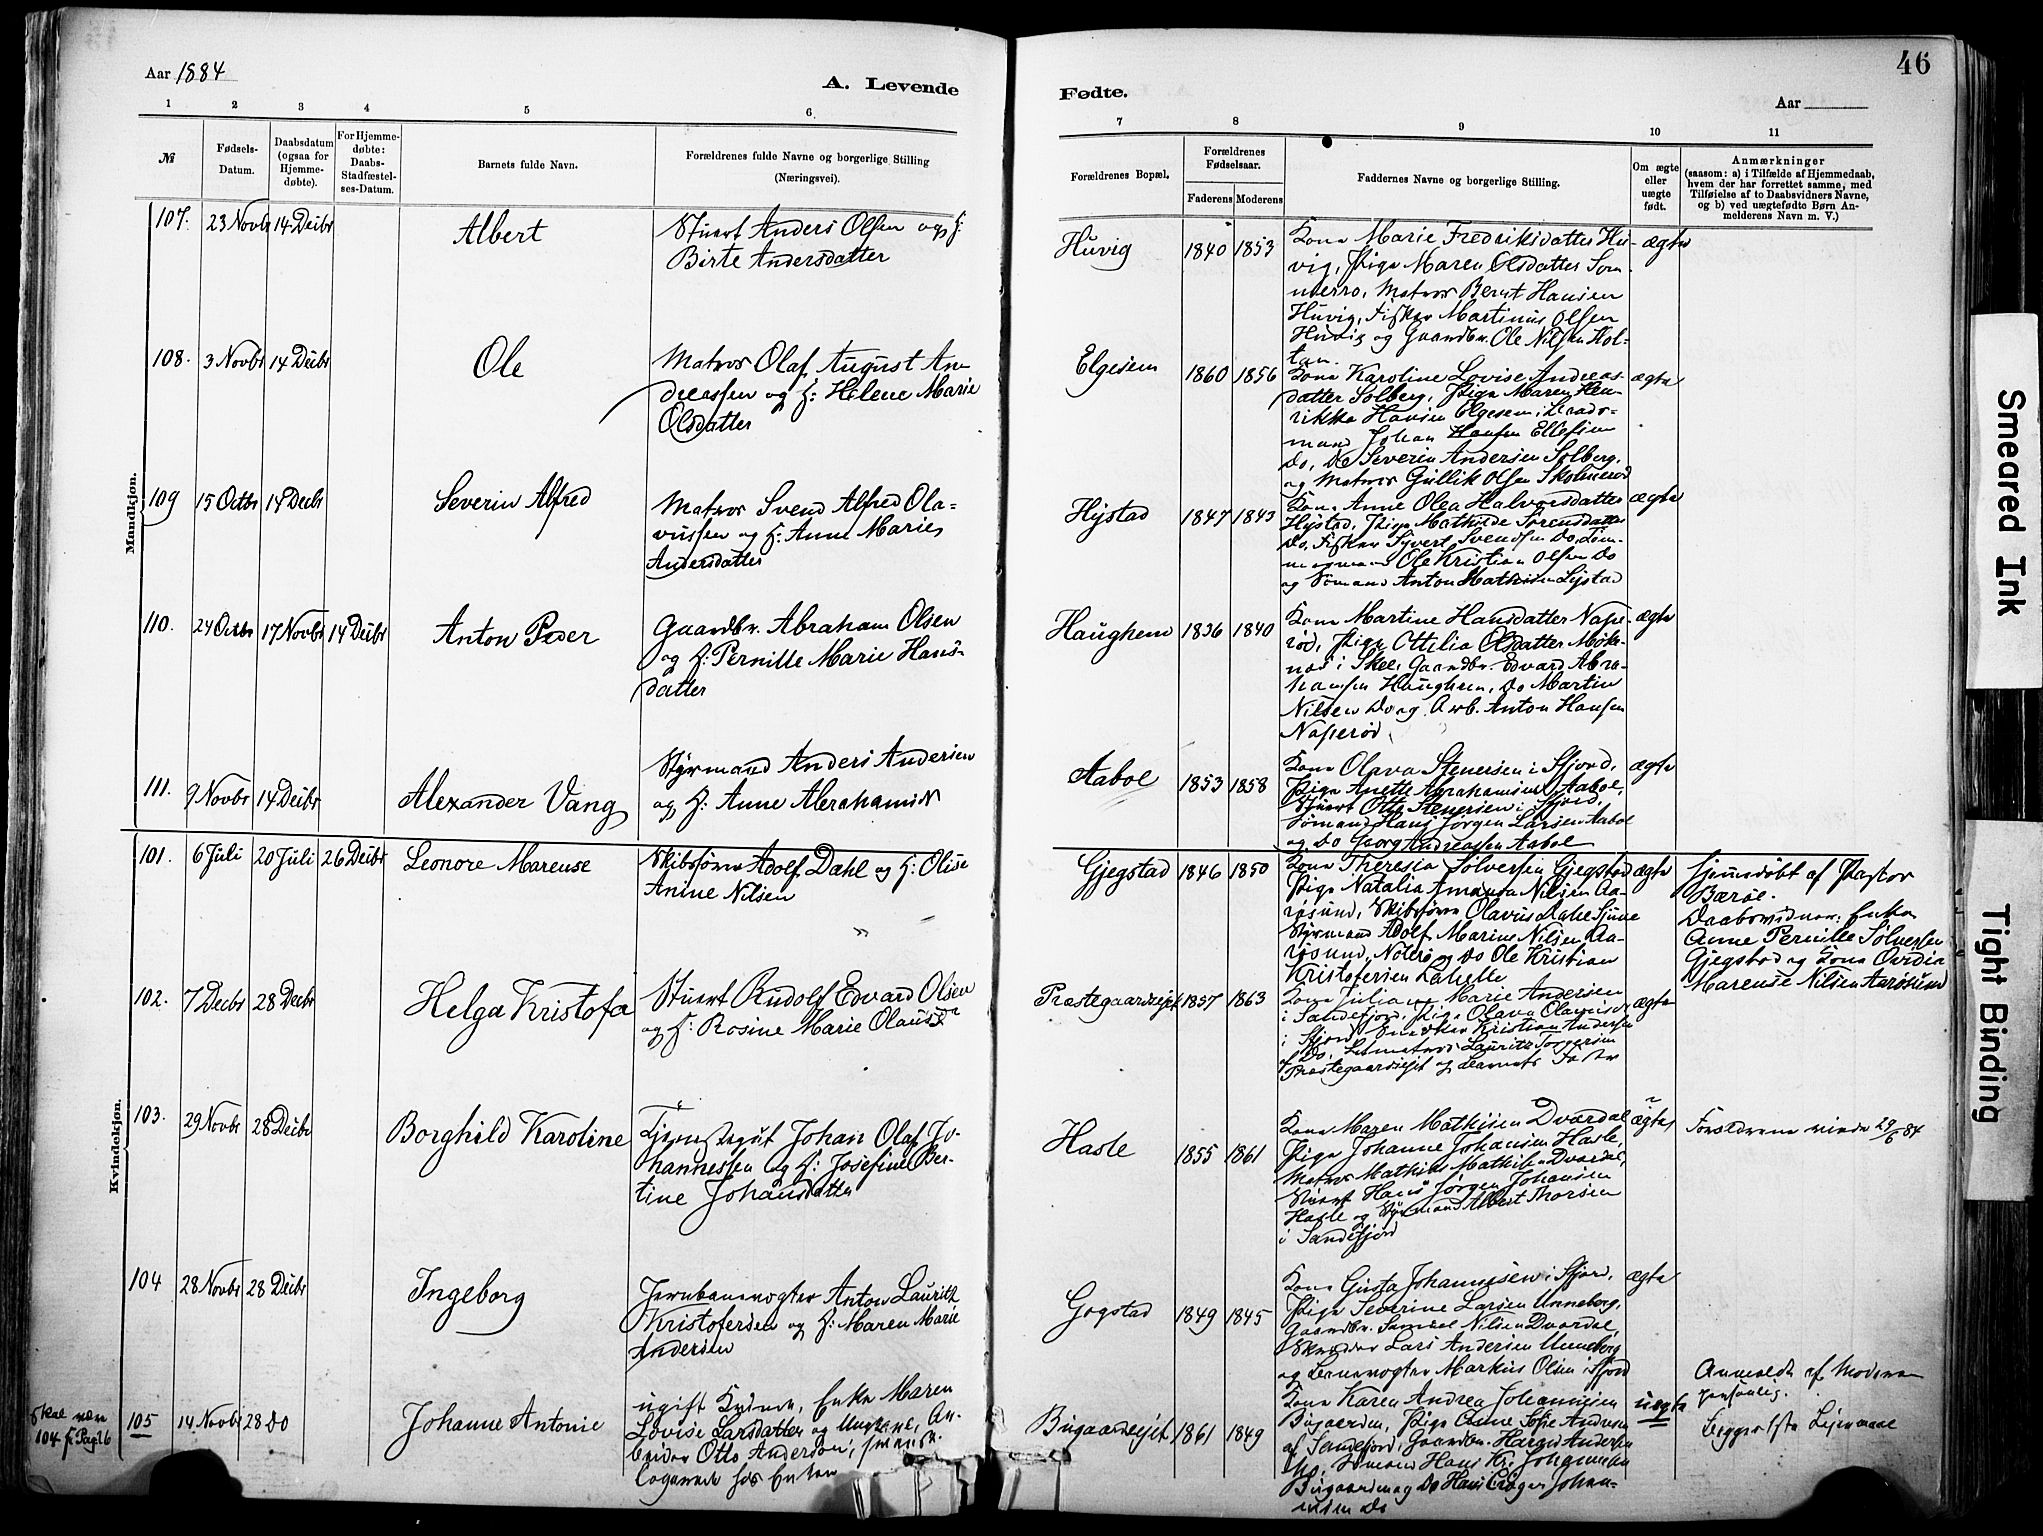 Aar 1884
A. Levende
1 2 3 4 5 6
№
Fødsels-Datum.
Daabsdatum (ogsaa for Hjemme-døbte).
For Hjemme-døbte: Daabs-Stadfæstel-ses-Datum.
Barnets fulde Navn.
Forældrenes fulde Navne og borgerlige Stilling
(Næringsvei).
Mandkjøn.
107. 23 Novbr 14 Decbr Albert
Stuert Anders Olsen og h:
Birte Andersdatter
108. 3 Novbr 14 Decbr Ole
Matros Olaf August An-
dreassen og h: Helene Marie
Olsdatter
109 15 Octbr 14 Decbr Severin Alfred
Matros Svend Alfred Ola-
vussen og h: Anne Marie
Andersdatter
110. 24 Octbr 17 Novbr 14 Decbr Anton Peder
Gaardbr. Abraham Olsen
og h: Pernille Marie Hans-
datter
111. 9 Novbr 14 Decbr Alexander Vang
Styrmand Anders Andersen
og h: Anne Abrahamsen
Kvindekjøn.
101. 6 Juli 20 Juli 26 Decbr Leonore Marense
Skibsfører Adolf Dahl og h: Olise
Anine Nilsen
102. 7 Decbr 28 Decbr Helga Kristofa
Stuert Rudolf Edvard Olsen
og h: Rosine Marie Olausdr
103. 29 Novbr 28 Decbr Borghild Karoline
Tjenestegut Johan Olaf Jo-
hannessen og h: Josefine Ber-
tine Johansdatter
104 28 Novbr 28 Decbr Ingeborg
Jernbanevogter Anton Lauritz
Kristofersen og h: Maren Marie
Andersen
Skal være
104 f. Pag 26
105 14 Novbr 28 Do Johanne Antonie
ugift Kvinde, Enke Maren
Lovise Larsdatter og Ungkarl, Ar-
beider Otto Anderson, svensk.
Logerende hos Enken
46
Fødte.
Aar
7 8 9 10 11
Forældrenes Bopæl.
Forældrenes Fødselsaar.
Faderens Moderens
Faddernes Navne og borgerlige Stilling.
Om ægte eller uægte født.
Anmærkninger
(saasom: a) i Tilfælde af Hjemmedaab,
hvem der har forrettet samme, med
Tilføielse af to Daabsvidners Navne,
og b) ved uægtefødte Børn An-
melderens Navn m. V.)
Huvig 1840 1853 ægte
Kone Marie Fredriksdatter Hu-
vig, Pige Maren Olsdatter Som-
merro, Matros Bernt Hansen
Huvig, Fisker Martinus Olsen
Huvig og Gaardbr. Ole Nilsen Hol-
tan.
Elgesem 1860 1856 ægte
Kone Karoline Lovise Andreas-
datter Solberg, Pige Maren Hen-
rikke Hansen Elgesem,
mand Johan Hansen Ellefsen
Do, Do Severin Andersen Solberg,
og Matros Gullik Olsen
Hystad 1847 1843 ægte
Kone Anne Olea Halvorsdatter
Hystad, Pige Mathilde Sørensdatter
Do, Fisker Syvert Svendsen Do, Tøm-
mermand Ole Kristian Olsen Do
og Sømand Anton Mathisen
Haughem 1836 1840 ægte
Kone Martine Hansdatter Nape-
rød, Pige Ottilia Olsdatter
i Skee, Gaardbr. Edvard Abra-
hamsen Haughem, Do Martin
Nilsen Do og Arb. Anton Hansen
Naperød.
Aabol 1853 1858 ægte
Kone Olava Stenersen i Sfjord,
Pige Anette Abrahamsen Aabol,
Stuert Otto Stenersen i Sfjord,
Sømand Hans Jørgen Larsen Aabol
og Do Georg Andreassen Aabol
Gjegstad 1846 1850 ægte
Kone Theresia Sølversen Gjegstad
Pige Natalia Amanda Nilsen Aa-
røsund, Skibsfører Olavus
Styrmand Adolf Marine Nilsen Aa-
røsund, Nøterø og Do Ole Kristian
Kristofersen
Hjemmedøbt af Pastor
Bærøe.
Daabsvidner: Enke
Anne Pernille Sølversen
Gjegstad og Kone Ovidia
Marense Nilsen Aarøsund
Præstegaardsejet 1857 1863 ægte
Kone Julia Marie Andersen
i Sandefjord, Pige Olava
i Sfjord, Kristian Andersen
Do, Letmatros Lauritz Torgersen
Præstegaardsejet og Barnets Fader
Hasle 1855 1861 ægte
Kone Maren Mathisen Dværdal
Pige Johanne Johansen Hasle,
Matros Mathias Mathisen Dværdal,
Stuert Hans Jørgen Johansen
Hasle og Styrmand Albert Thorsen
i Sandefjord
Forældrene viede 29/6 84
Gogstad 1849 1845 ægte
Kone Gusta Johannesen i Sfjord,
Pige Severine Larsen Unneberg,
Gaardbr. Samuel Nilsen Dværdal,
Skrædder Lars Andersen Unneberg
og Banevogter Markus Olsen i Sfjord
Bugaardsejet 1861 1849 uægte
Kone Karen Andrea Johannesen
Bugaarden, Pige Anne Sofie Andersen
af Sandefjord, Gaardbr. Andersen
Do, Sømand Hans Kr. Johannesen
Bugaarden og Do Hans Johan-
nesen Do
Anmeldt af Moderen
personlig.
Begges 1ste Lejermaal
Smeared Ink
Tight Binding